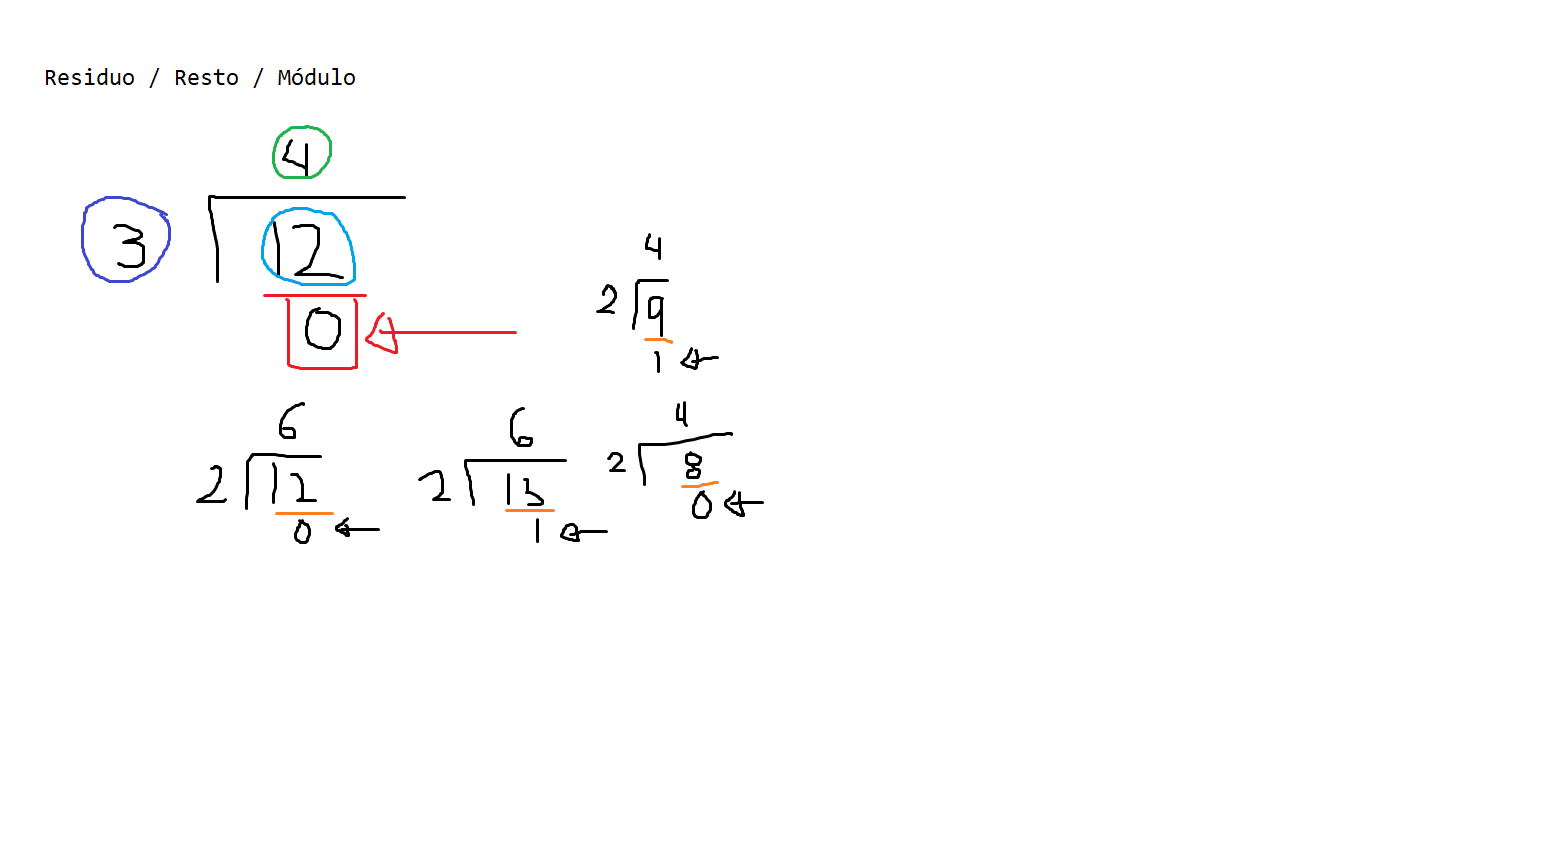 Residuo / Resto / Módulo
4
3 12
0
4
2 9
1
6
2 12
0
6
2 13
1
4
2 8
0